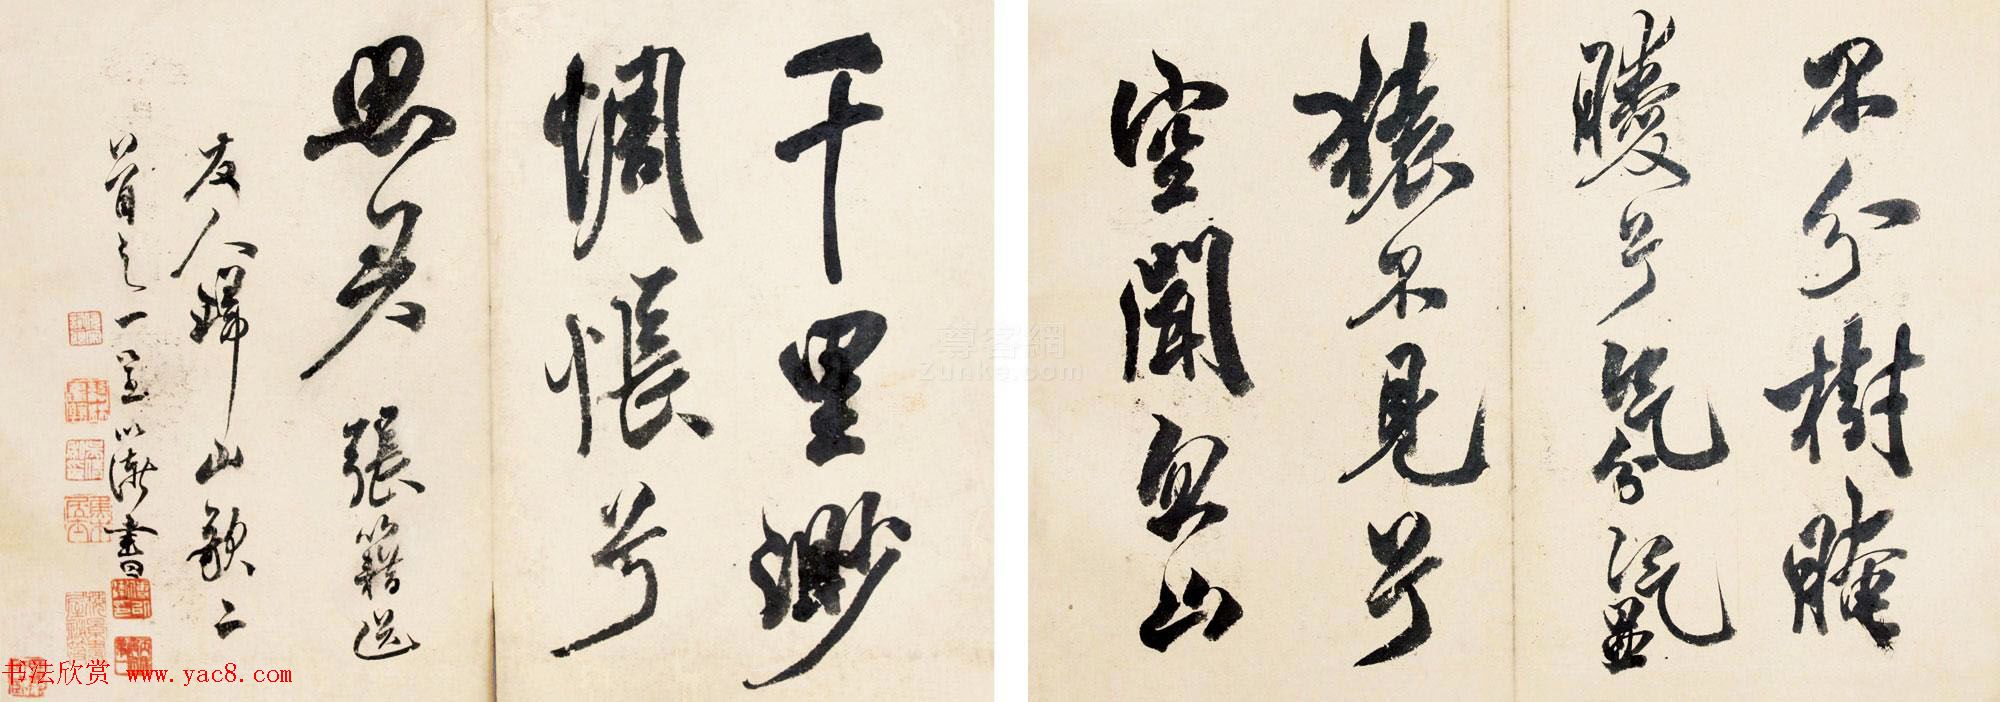 不分樹晻
曖兮氛氳
猿不見兮
空聞忽山
千里渺
惆悵兮
思君 張籍送
友人歸山歌二
首之一呈以漸書
尊客網
Zunke.com
书法欣赏 www.yac8.com